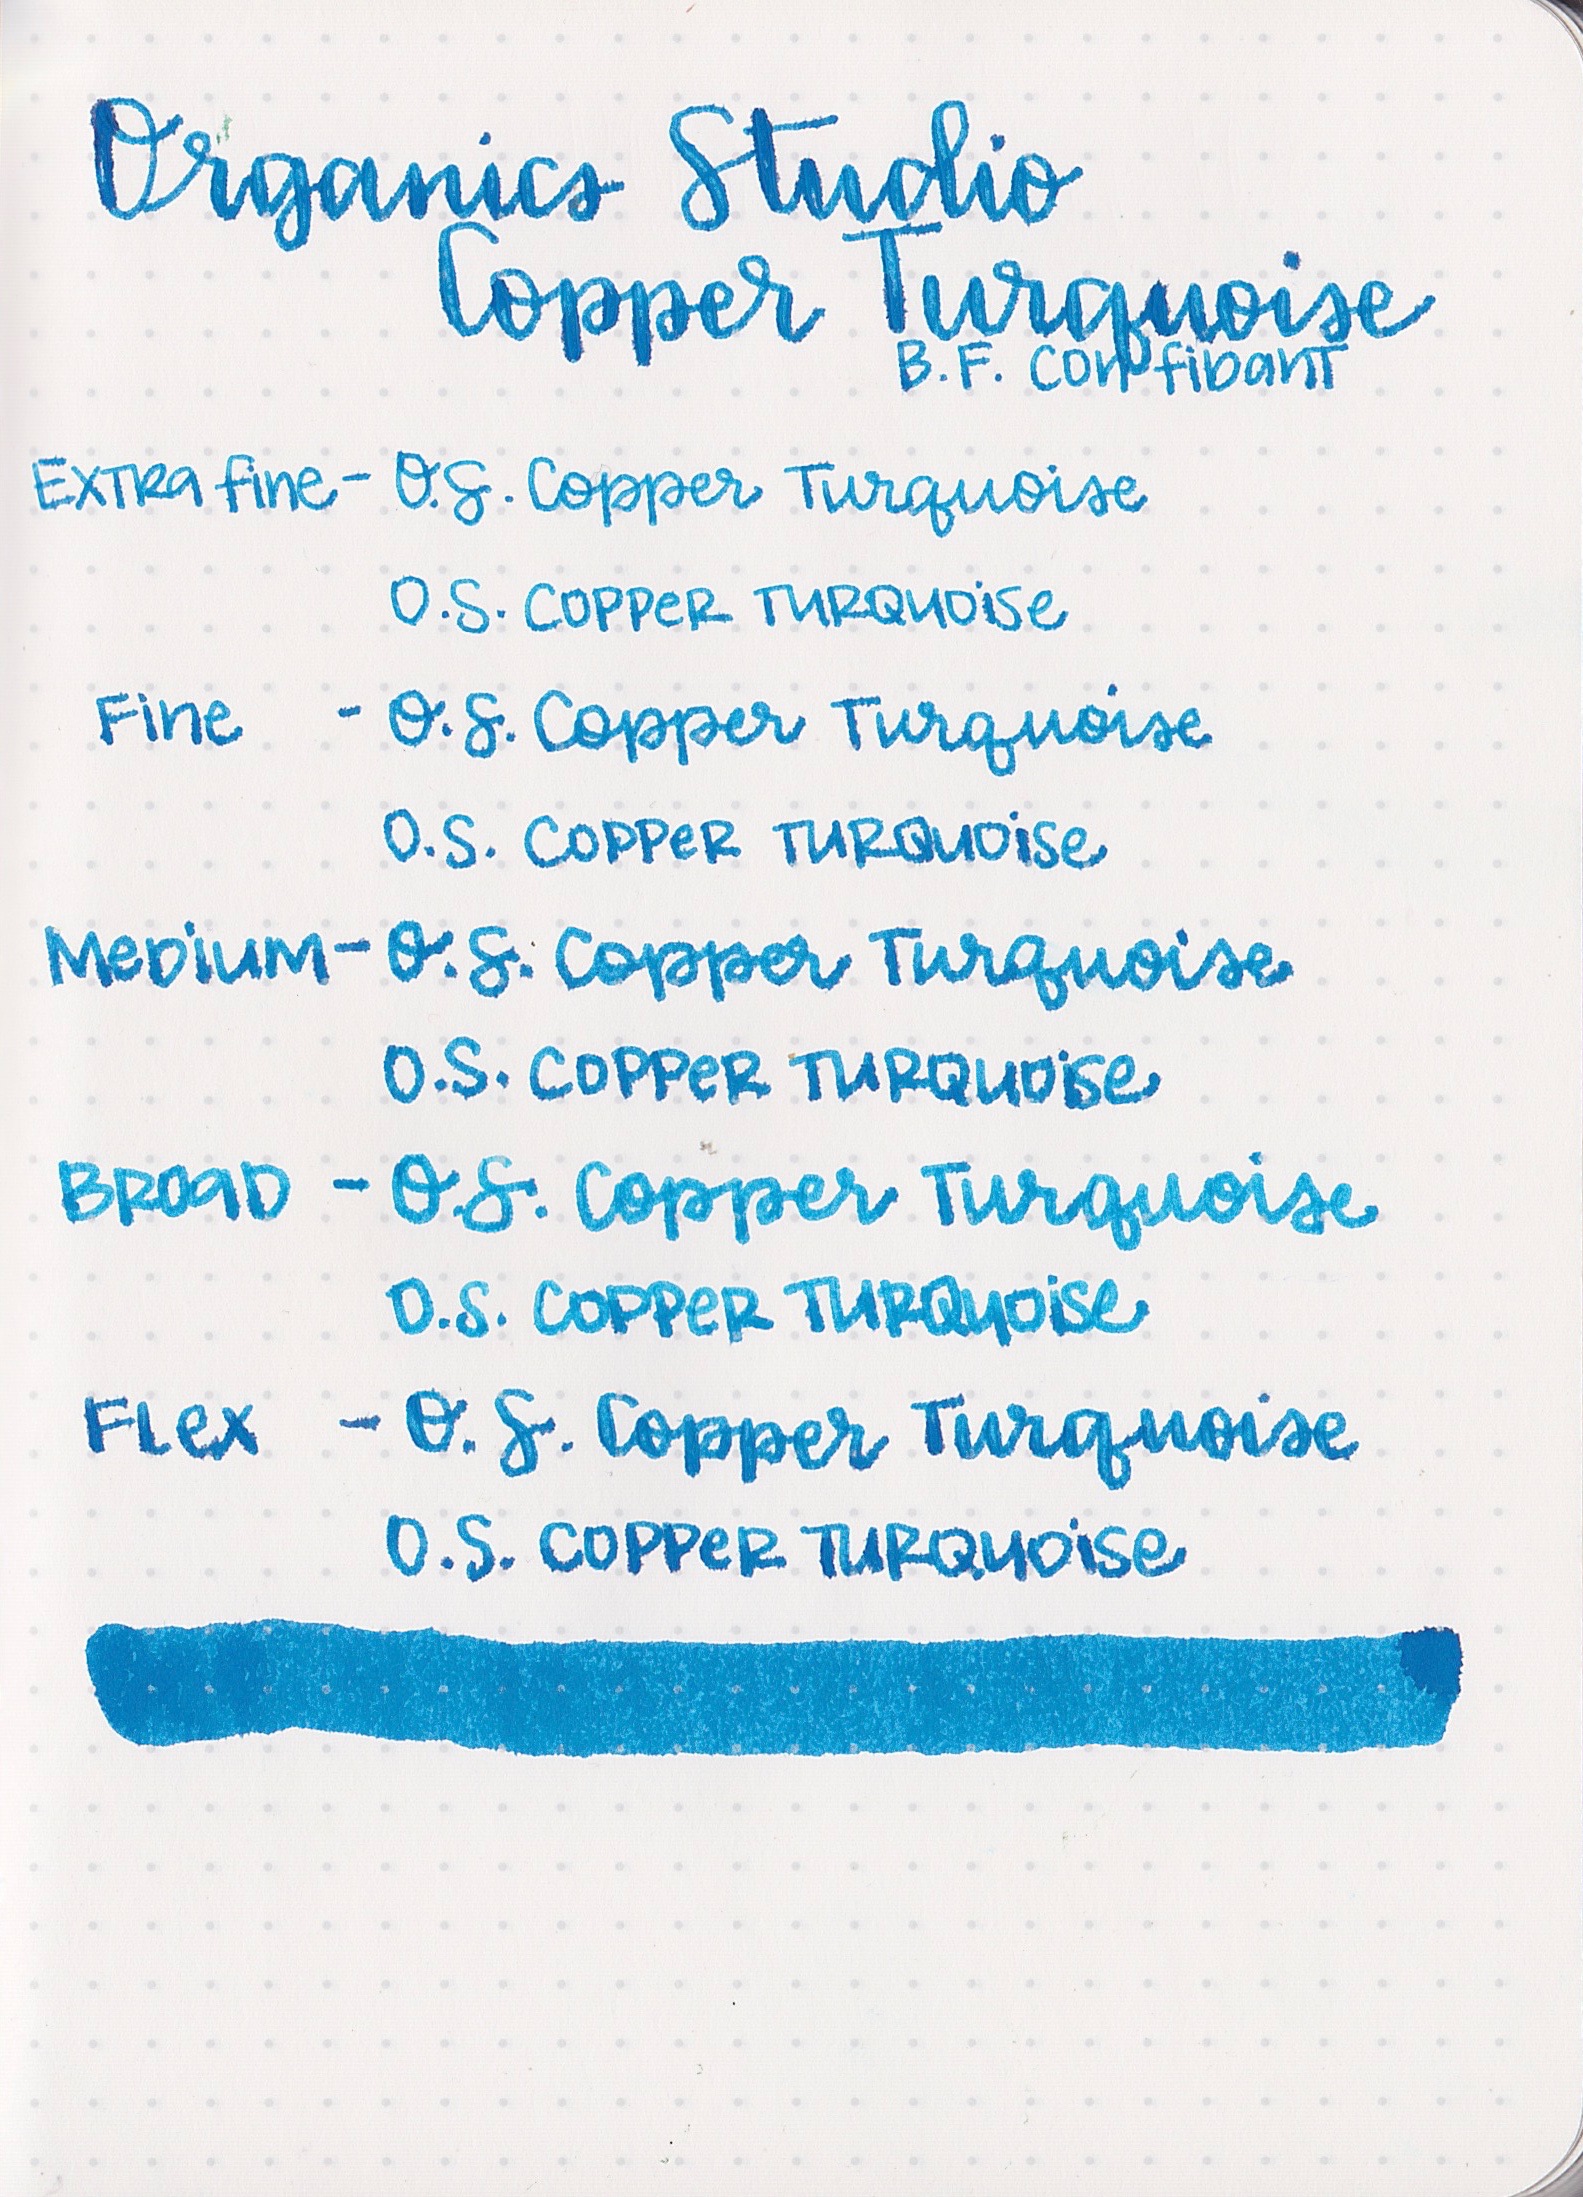 Organics Studio
Copper Turquoise
B.F. Confidant
Extra fine - O.S. Copper Turquoise
O.S. Copper Turquoise
Fine - O.S. Copper Turquoise
O.S. Copper Turquoise
Medium - O.S. Copper Turquoise
O.S. Copper Turquoise
Broad - O.S. Copper Turquoise
O.S. Copper Turquoise
Flex - O.S. Copper Turquoise
O.S. Copper Turquoise